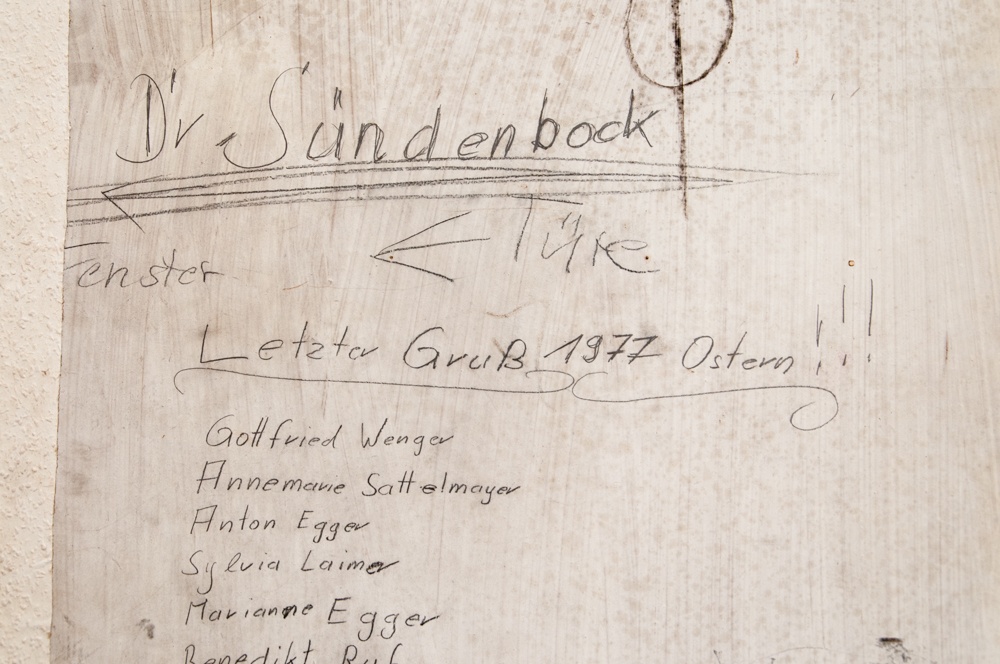 D'r Sündenbock
Türe
Fenster
Letzter Gruß 1977 Ostern!!!
Gottfried Wenger
Annemarie Sattelmayer
Anton Egger
Sylvia Laimer
Marianne Egger
Benedikt Ruf